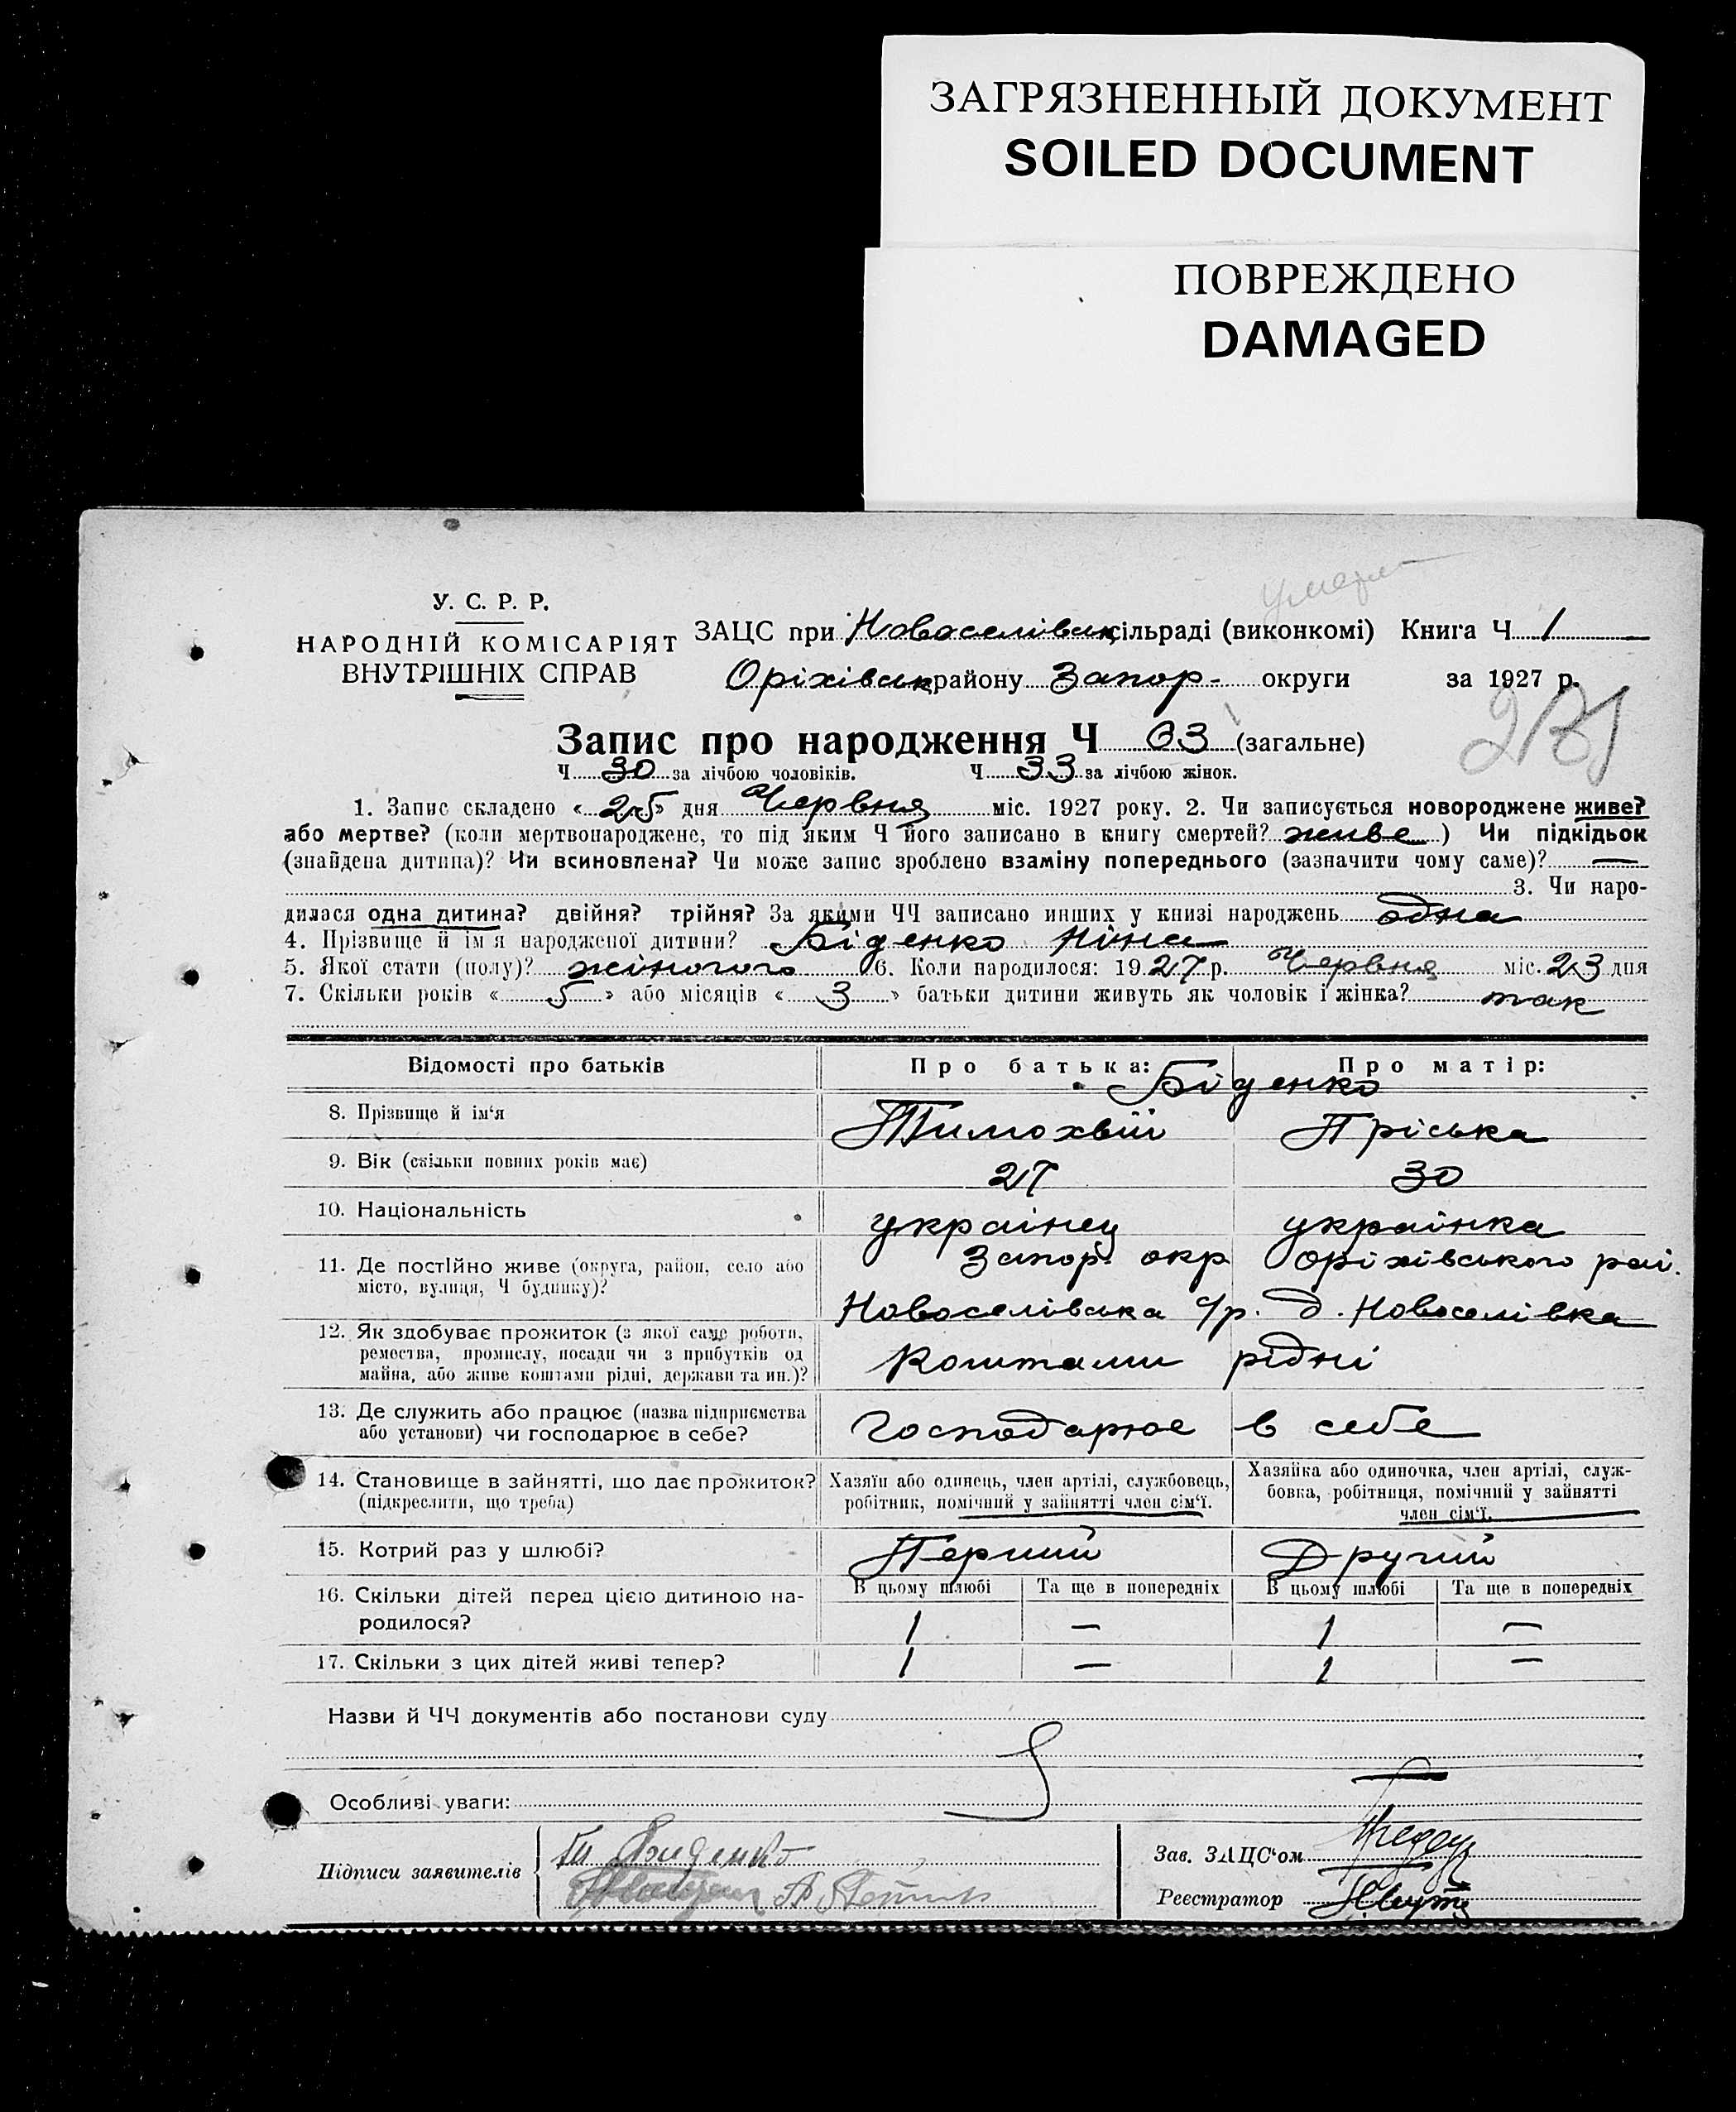 ЗАГРЯЗНЕННЫЙ ДОКУМЕНТ
SOILED DOCUMENT
ПОВРЕЖДЕНО
DAMAGED
У. С. Р. Р.
НАРОДНІЙ КОМІСАРІЯТ
ВНУТРІШНІХ СПРАВ
ЗАЦС при Новоселівськ сільраді (виконкомі) Книга Ч 1
Оріхівськ району Запор. округи за 1927 р.
Запис про народження Ч 63 (загальне)
Ч 30 за лічбою чоловіків. Ч 33 за лічбою жінок.
1. Запис складено « 25 » дня Червня міс. 1927 року. 2. Чи записується новороджене живе?
або мертве? (коли мертвонароджене, то під яким Ч його записано в книгу смертей? живе ) Чи підкідьок
(знайдена дитина)? Чи всиновлена? Чи може запис зроблено взаміну попереднього (зазначити чому саме)? —
3. Чи наро-
дилася одна дитина? двійня? трійня? За якими ЧЧ записано инших у книзі народжень одна
4. Прізвище й ім'я народженої дитини? Біденко Ніна
5. Якої стати (полу)? жіночого 6. Коли народилося: 1927 р. Червня міс. 23 дня
7. Скільки років « 5 » або місяців « 3 » батьки дитини живуть як чоловік і жінка? так
Відомості про батьків Про батька: Про матір:
Біденко
8. Прізвище й ім'я Тимохвій Пріська
9. Вік (скільки повних років має) 27 30
10. Національність українец українка
11. Де постійно живе (округа, район, село або Запор. окр Оріхівського рай.
місто, вулиця, Ч будинку)? Новоселівська с/р. д. Новоселівка
12. Як здобуває прожиток (з якої саме роботи,
ремества, промислу, посади чи з прибутків од Коштами рідні
майна, або живе коштами рідні, держави та ин.)?
13. Де служить або працює (назва підприємства Господарює в себе
або установи) чи господарює в себе?
14. Становище в зайнятті, що дає прожиток? Хазяїн або одинець, член артілі, службовець, Хазяйка або одиночка, член артілі, служ-
(підкреслити, що треба) робітник, помічний у зайнятті член сім'ї. бовка, робітниця, помічний у зайнятті
член сім'ї.
15. Котрий раз у шлюбі? Перший Другий
16. Скільки дітей перед цією дитиною на- В цьому шлюбі Та ще в попередніх В цьому шлюбі Та ще в попередніх
родилося? 1 — 1 —
17. Скільки з цих дітей живі тепер? 1 — 1 —
Назви й ЧЧ документів або постанови суду
Особливі уваги:
Підписи заявителів
Зав. ЗАЦС'ом
Реєстратор